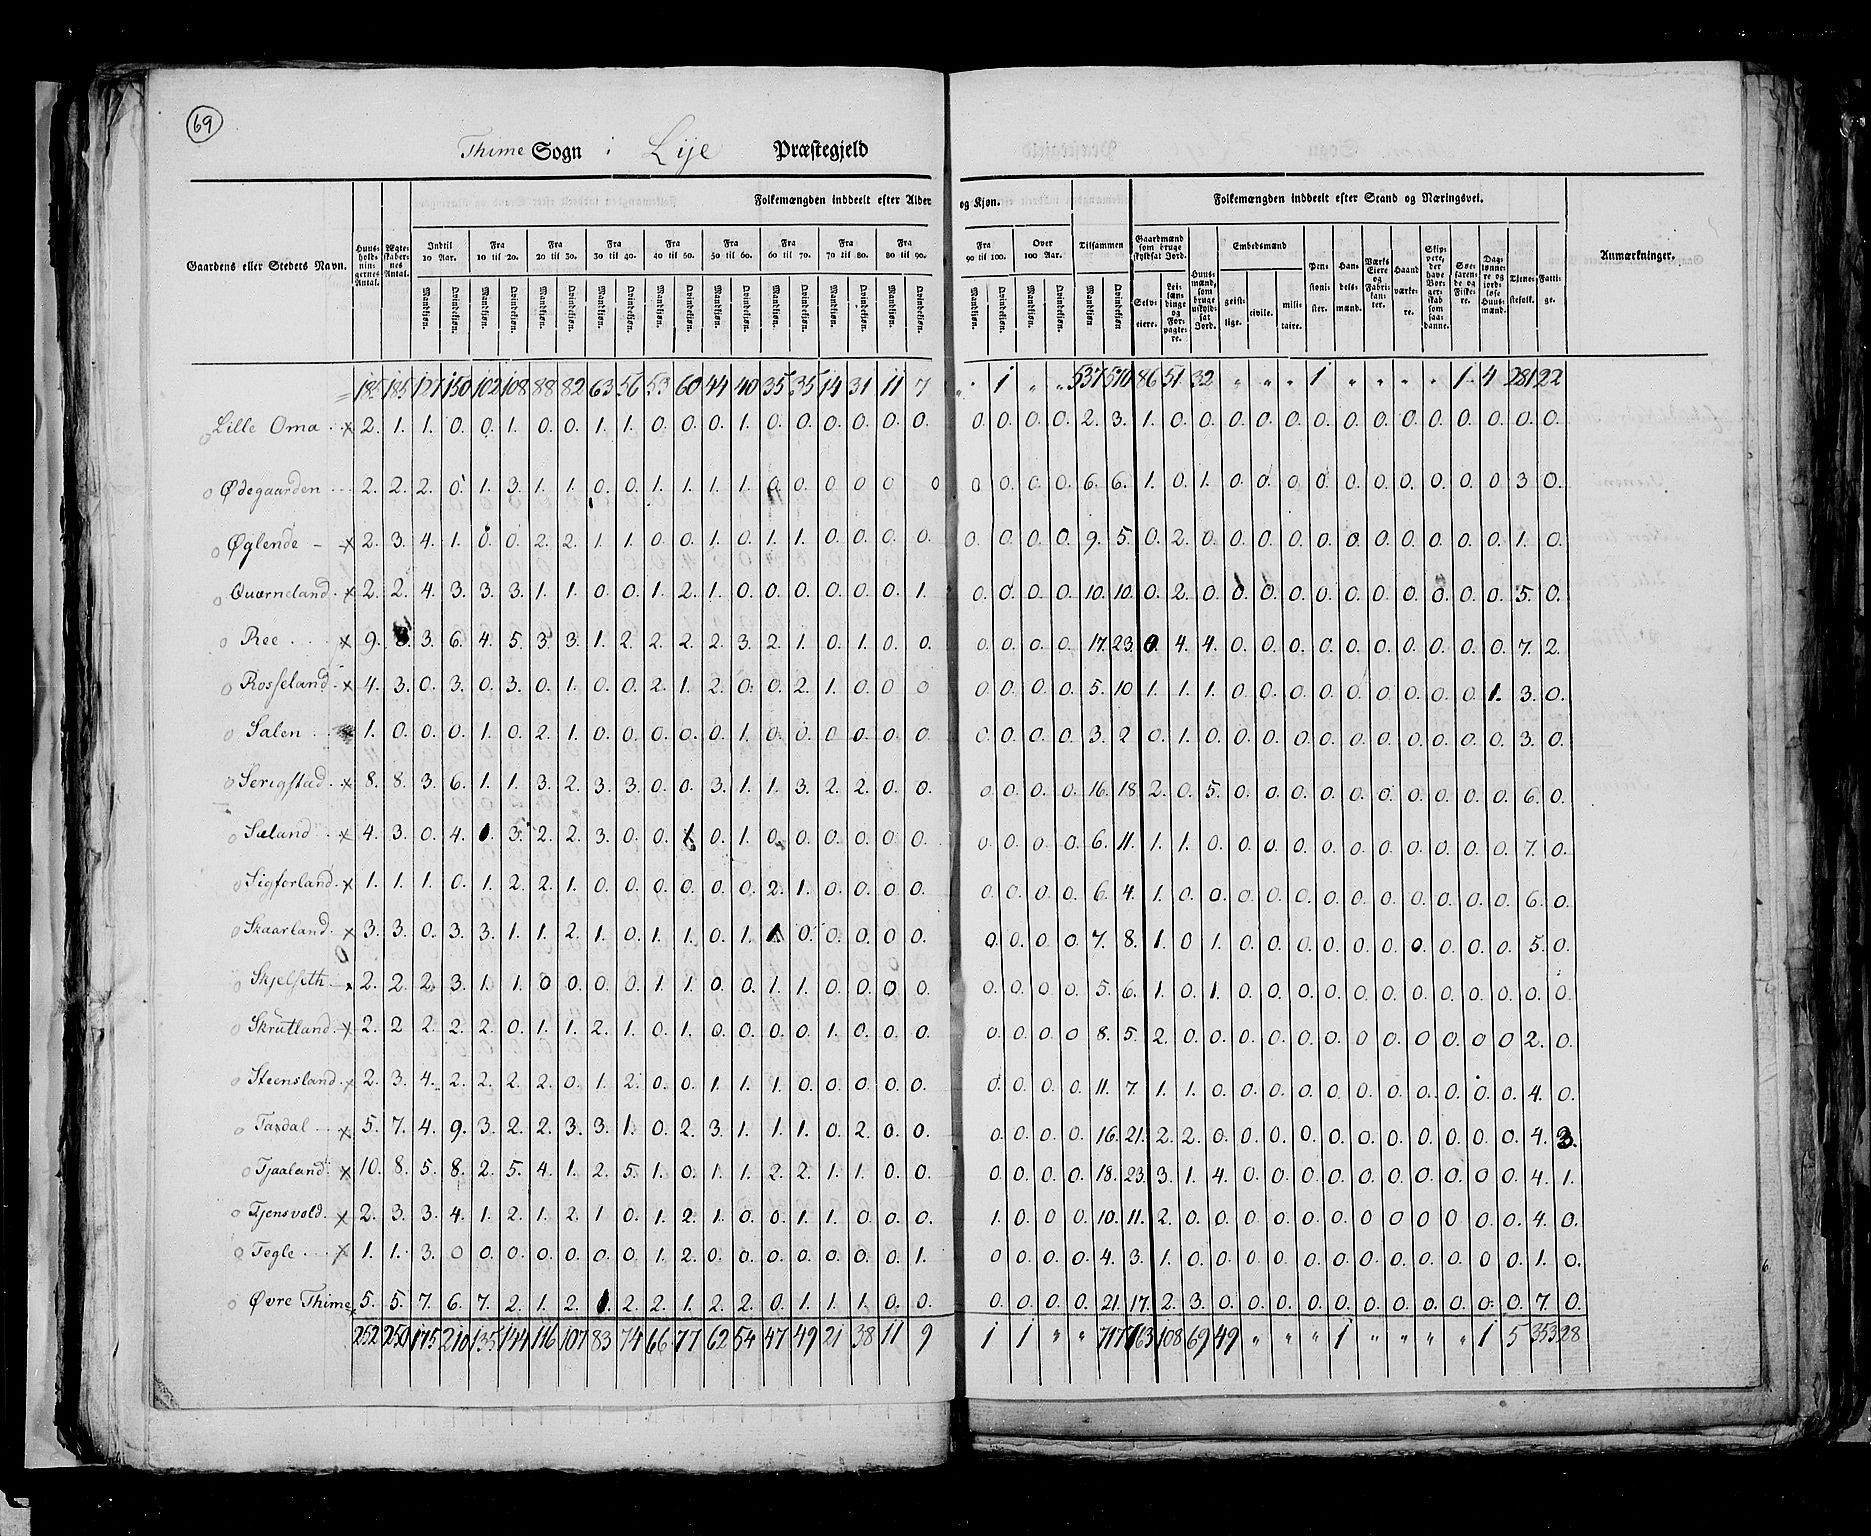 69
Thime Sogn i Lije Præstegjeld
Gaardens eller Stedets Navn. Huus-holdnin-gernes Antal. Ægte-skaber-nes Antal. Folkemængden inddeelt efter Alder og Kjøn. Tilsammen Folkemængden inddeelt efter Stand og Næringsvei. Anmærkninger.
Indtil 10 Aar. Fra 10 til 20. Fra 20 til 30. Fra 30 til 40. Fra 40 til 50. Fra 50 til 60. Fra 60 til 70. Fra 70 til 80. Fra 80 til 90. Fra 90 til 100. Over 100 Aar.
Mandkjøn. Qvindekjøn. Mandkjøn. Qvindekjøn. Mandkjøn. Qvindekjøn. Mandkjøn. Qvindekjøn. Mandkjøn. Qvindekjøn. Mandkjøn. Qvindekjøn. Mandkjøn. Qvindekjøn. Mandkjøn. Qvindekjøn. Mandkjøn. Qvindekjøn. Mandkjøn. Qvindekjøn. Mandkjøn. Qvindekjøn. Mandkjøn Qvindekjøn
Gaardmænd som bruge skyldsat Jord. Selveiere. Leilændinge og Forpagtere. Huusmænd, som bruge uskyldsat Jord. Embedsmænd geistlige. civile. militaire. Pensionister. Handelsmænd. Værks Eiere og Fabrikanter. Haandværkere. Skippere, der have Borgerskab som saadanne. Søefarende og Fiskere. Daglønnere og jordløse Huusmænd. Tjenestefolk. Fattige.
185 185 127 150 102 108 88 82 63 56 53 60 44 40 35 35 14 31 11 7 " 1 " " 537 570 86 51 32 " " " 1 " " " " 1 4 281 22
Lille Oma x 2. 1. 1. 0. 0. 1. 0. 0. 1. 1. 0. 0. 0. 1. 0. 0. 0. 0. 0. 0. 0. 0. 0. 0. 2. 3. 1. 0. 0. 0. 0. 0. 0. 0. 0. 0. 0. 0. 0. 0. 0.
Ødegaarden 2. 2. 2. 0. 1. 3. 1. 1. 0. 0. 1. 1. 1. 1. 0. 0. 0. 0. 0 0 0 0. 0. 0. 6. 6. 1. 0. 1. 0. 0. 0. 0. 0. 0. 0. 0. 0. 0 3. 0.
Øglende x 2. 3. 4. 1. 0. 0. 2. 2. 1. 1. 0. 0. 1. 0. 1. 1. 0. 0. 0. 0. 0. 0. 0. 0. 9. 5. 0. 2. 0. 0. 0. 0. 0. 0. 0. 0. 0. 0. 0. 1. 0.
Quærneland x 2. 2. 4. 3. 3. 3. 1. 1. 0. 0. 1. 2. 1. 0. 0. 0. 0. 0. 0. 1. 0. 0. 0. 0. 10. 10. 0. 2. 0. 0. 0. 0. 0. 0. 0. 0. 0. 0. 0. 5. 0.
Ree x 9. 8. 3. 6. 4. 5. 3. 3. 1. 2. 2. 2. 2. 3. 2. 1. 0. 1. 0. 0. 0. 0. 0. 0. 17. 23. 0. 4. 4. 0. 0. 0. 0. 0. 0. 0. 0. 0. 0. 7. 2.
Rosseland x 4. 3. 0. 3. 0. 3. 0. 1. 0. 0. 2. 1. 2. 0. 0. 2. 1. 0. 0 0 0 0. 0. 0. 5. 10. 1. 1. 1. 0. 0. 0. 0. 0. 0. 0. 0. 0. 1. 3. 0.
Salen 1. 0. 0. 0. 1. 0. 2. 1. 0. 0. 0. 0. 0. 1. 0. 0. 0 0. 0. 0. 0. 0. 0. 0. 3. 2 0. 1. 0. 0. 0. 0. 0. 0. 0. 0. 0. 0. 0. 3. 0.
Serigstad x 8. 8. 3. 6. 1. 1. 3. 2. 3. 3. 0. 0. 3. 1. 1. 3. 2. 2. 0. 0. 0. 0. 0. 0. 16. 18. 2. 0. 5. 0. 0. 0. 0. 0. 0. 0. 0. 0. 0. 6. 0.
Sæland x 4. 3. 0. 4. 0. 3. 2. 2. 3. 0. 0. 1. 0. 1. 0. 0. 0. 0. 0. 0. 0. 0. 0. 0. 6. 11. 1. 1. 0. 0. 0. 0. 0. 0. 0. 0. 0. 0. 0. 7. 0.
Sigforland x 1. 1. 1. 0. 1. 2. 2. 1. 0. 0. 0. 0. 0. 0. 2. 1. 0. 0. 0. 0. 0. 0. 0. 0. 6. 4. 1. 0. 0. 0. 0. 0. 0. 0. 0. 0. 0. 0. 0. 6. 0.
Skaarland x 3. 3. 0. 3. 3. 1. 1. 2. 1. 0. 1. 1. 0. 1. 1. 0. 0. 0. 0. 0. 0. 0. 0. 0 7. 8. 1. 0 1. 0. 0. 0. 0. 0. 0. 0. 0. 0. 0. 5. 0.
Skjelseth x 2. 2. 2. 3. 1. 1. 0 0. 0. 0. 1. 1. 0. 0. 1. 1. 0. 0. 0 0. 0. 0. 0. 0. 5. 6. 1. 0. 1. 0. 0. 0. 0. 0. 0. 0. 0. 0. 0. 0. 0.
Skrutland x 2. 2 2. 2. 2. 0. 1. 1. 2. 1. 0. 1. 0. 0. 0. 0. 1. 0. 0. 0. 0. 0. 0. 0 8. 5. 2. 0. 0. 0. 0. 0. 0. 0. 0. 0. 0. 0. 0 2. 0.
Steensland x 2. 3. 4. 2. 2. 2. 2. 0. 1. 2. 0. 0. 1. 1. 1. 0. 0. 0. 0. 0. 0. 0. 0. 0. 11. 7. 1. 1. 0. 0. 0. 0. 0. 0. 0. 0. 0. 0. 0. 4. 0.
Taxdal x 5. 7. 4. 9. 3. 2. 2. 3. 3. 1. 0. 2. 3. 1. 1. 1. 0. 2. 0. 0. 0. 0. 0. 0. 16. 21. 2. 2. 0. 0. 0. 0. 0. 0. 0. 0. 0. 0. 0. 4. 3.
Tjaaland x 10. 8. 5. 8. 2. 5. 4. 1. 2. 5. 1. 0. 1. 1. 2. 2. 1. 1. 0. 0. 0. 0. 0. 0. 18. 23. 3. 1. 4. 0. 0. 0. 0. 0. 0. 0. 0. 0. 0. 4. 1.
Tjensvold x 2. 3. 3. 4. 1. 2. 1. 2. 1 0. 1. 2. 1. 0. 0. 1. 1. 0. 0. 0. 1. 0. 0. 0. 10. 11. 2. 0. 0. 0. 0. 0. 0. 0. 0. 0. 0 0. 0. 4. 0.
Tegle x 1. 1. 3. 0 0. 0. 0. 0. 0. 0. 1. 2. 0. 0. 0. 0. 0. 0. 0. 1. 0 0. 0. 0. 4. 3. 1. 0. 0. 0. 0. 0. 0. 0. 0. 0. 0. 0. 0. 1. 0.
Øvre Thime x 5. 5. 7. 6. 7. 2. 1. 2. 1. 2. 2. 1. 2. 2. 0. 1. 1. 1. 0. 0. 0. 0. 0. 0. 21. 17. 2. 3. 0. 0. 0. 0. 0. 0. 0. 0. 0. 0. 0. 7. 0.
252 250 175 210 135 144 116 107 83 74 66 77 62 54 47 49 21 38 11 9 1 1 " " 717 763 108 69 49 " " " 1 " " " " 1 5 353 28